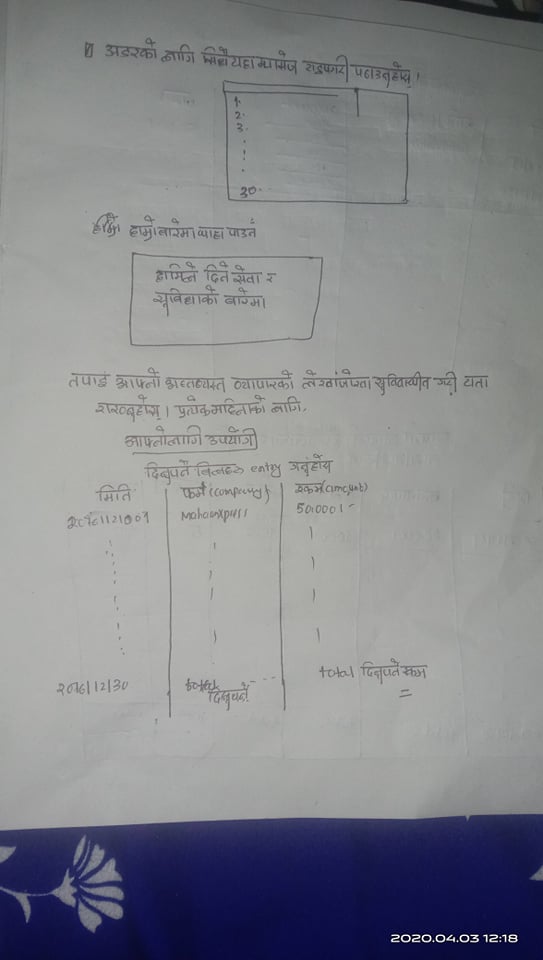 अडरको लागि सिधै यहा म्यासेज टाइप गरी पठाउनुहोस् ।
1.
2.
3.
30.
हाम्रो बारेमा यहा पाउने
हामिले दिने सेवा र
सुविधाको बारेमा
तपाइ आफ्नो अस्तब्यस्त व्यापारको लेखाजोखा सुव्यवस्थीत गरी यता
राख्नुहोस् । प्रत्येक महिनाको लागि,
आफ्नो लागि उपयोगी
दिनुपर्ने बिलहरु entry गर्नुहोस्
मिति फर्म (company) रकम (amount)
50,0001-
2076/12/30 total दिनुपर्ने ---- total दिनुपर्ने रकम
=
2020.04.03 12:18